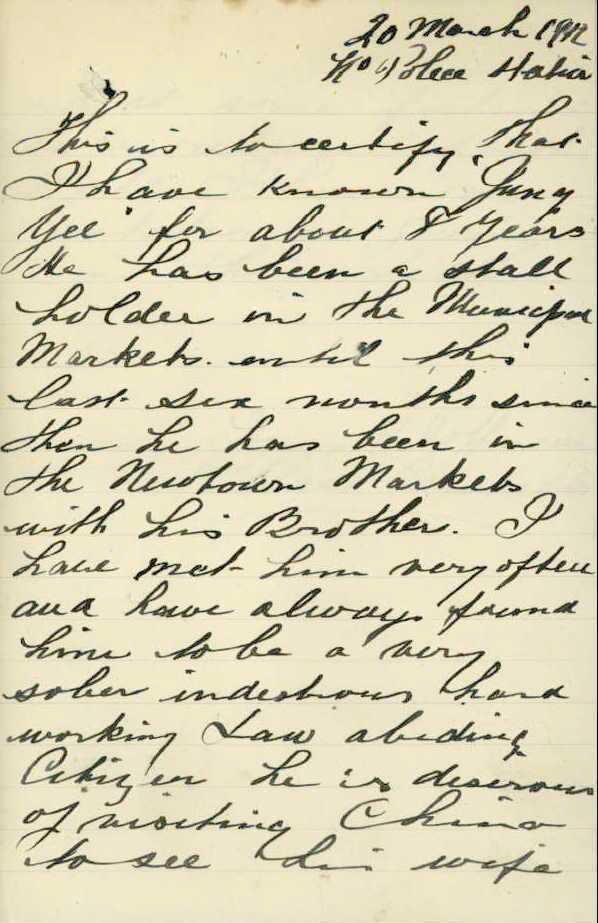 20 March 1912
No 1 Police Station
This is to certify that
I have known "Jung
Yee" for about 8 Years
He has been a stall
holder in the Municipal
Markets. until this
last six months since
then he has been in
the Newtown Markets
with his Brother. I
have met him very often
and have always found
him to be a very
sober industrious hard
working Law abiding
Citizen he is desirous
of visiting China
to see his wife